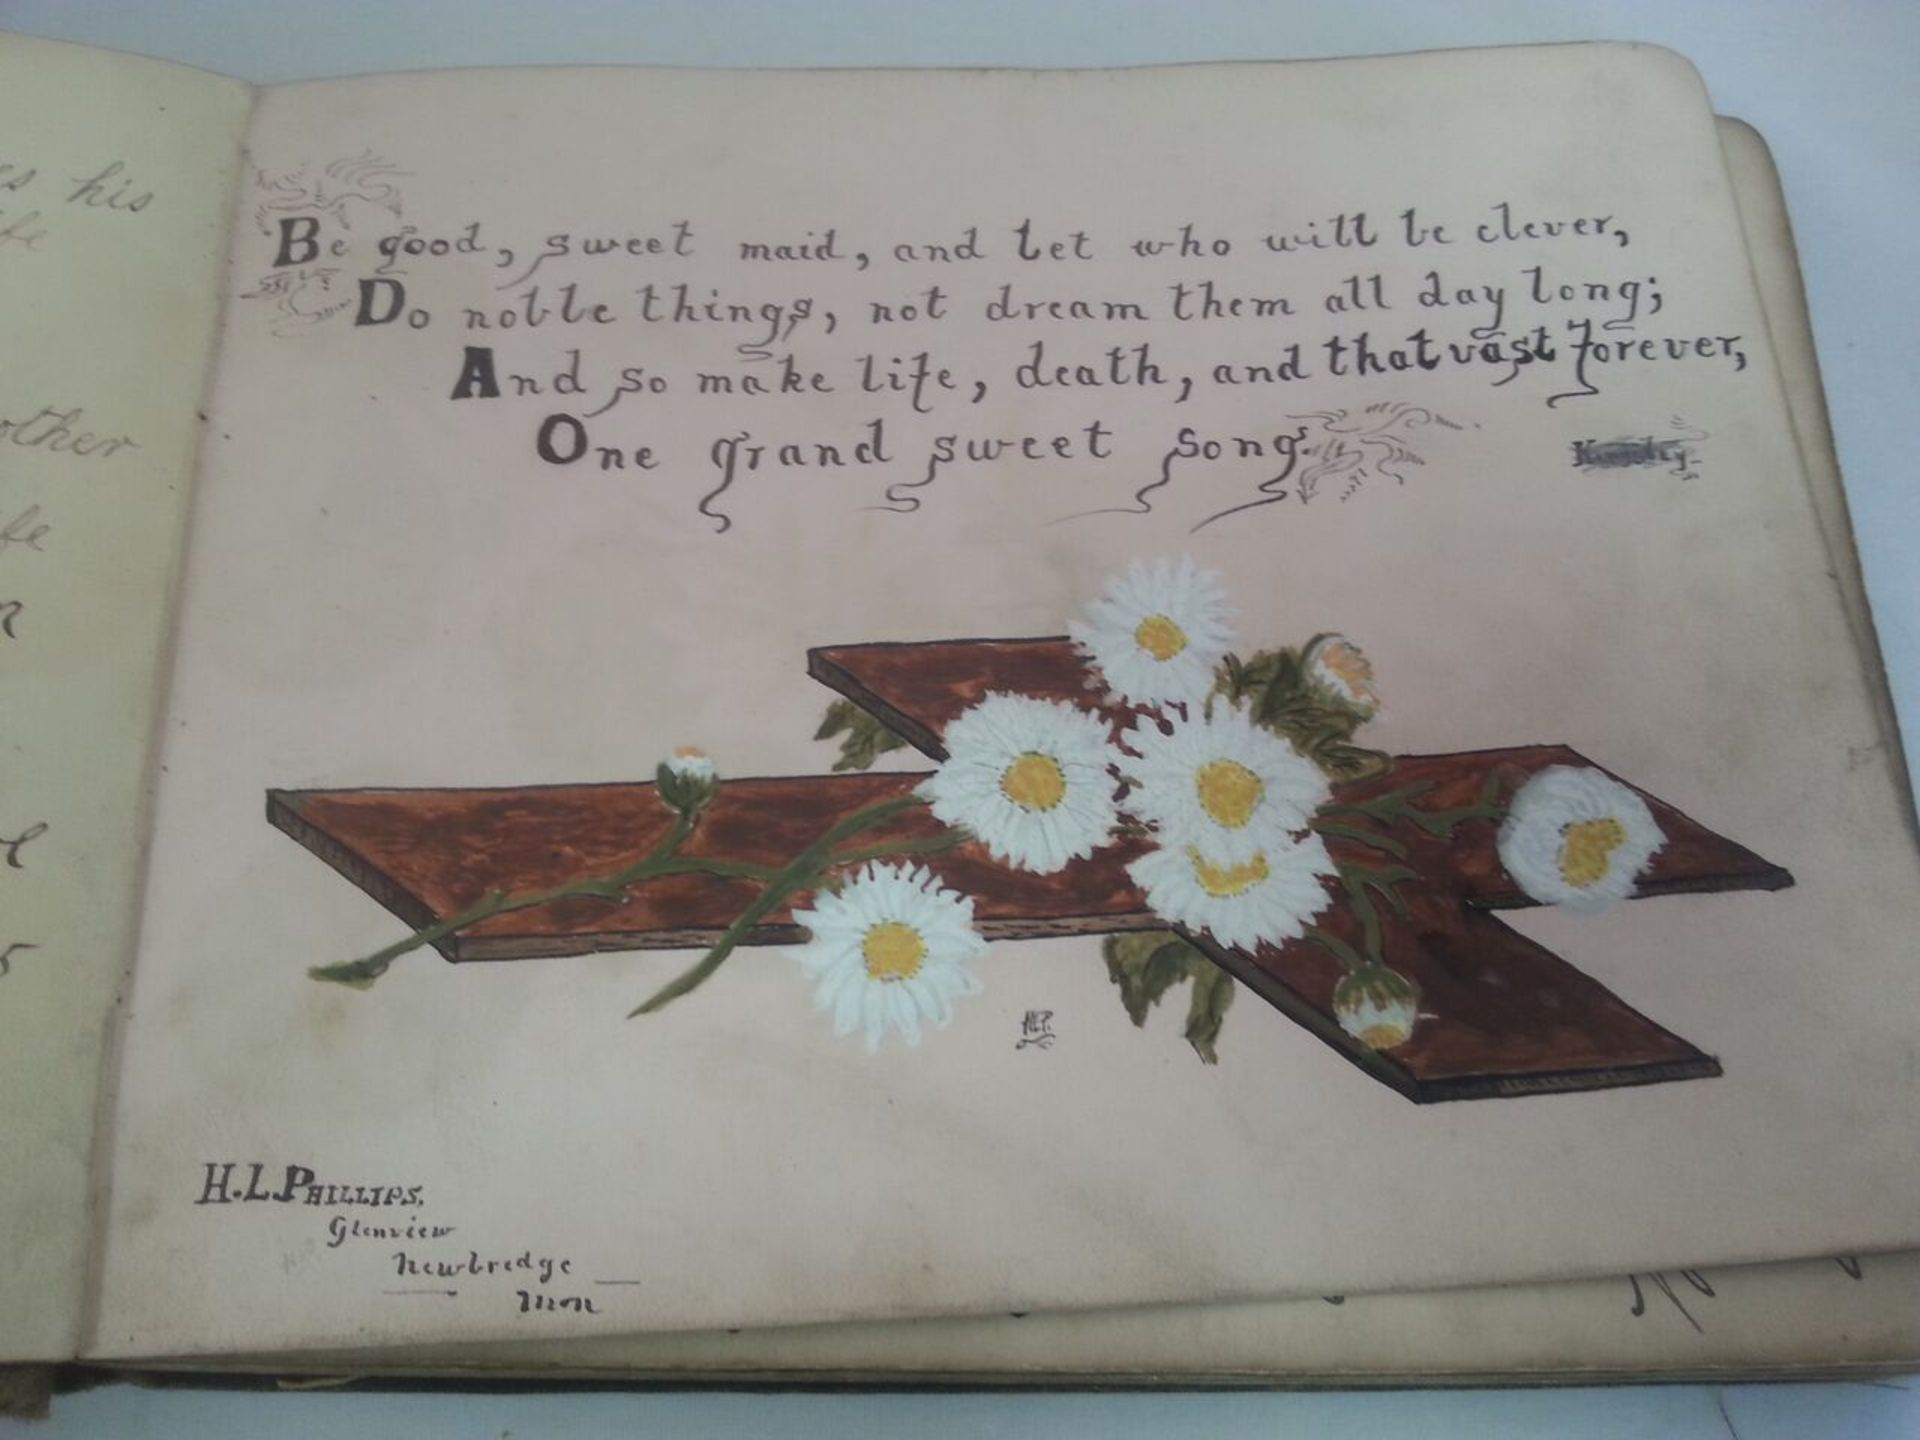 s his
fe
other
fe
Be good, sweet maid, and let who will be clever,
Do noble things, not dream them all day long;
And so make life, death, and that vast forever,
One grand sweet song.
Kingsley
HLP.
H.L. PHILLIPS,
Glenview
Newbridge
Mon